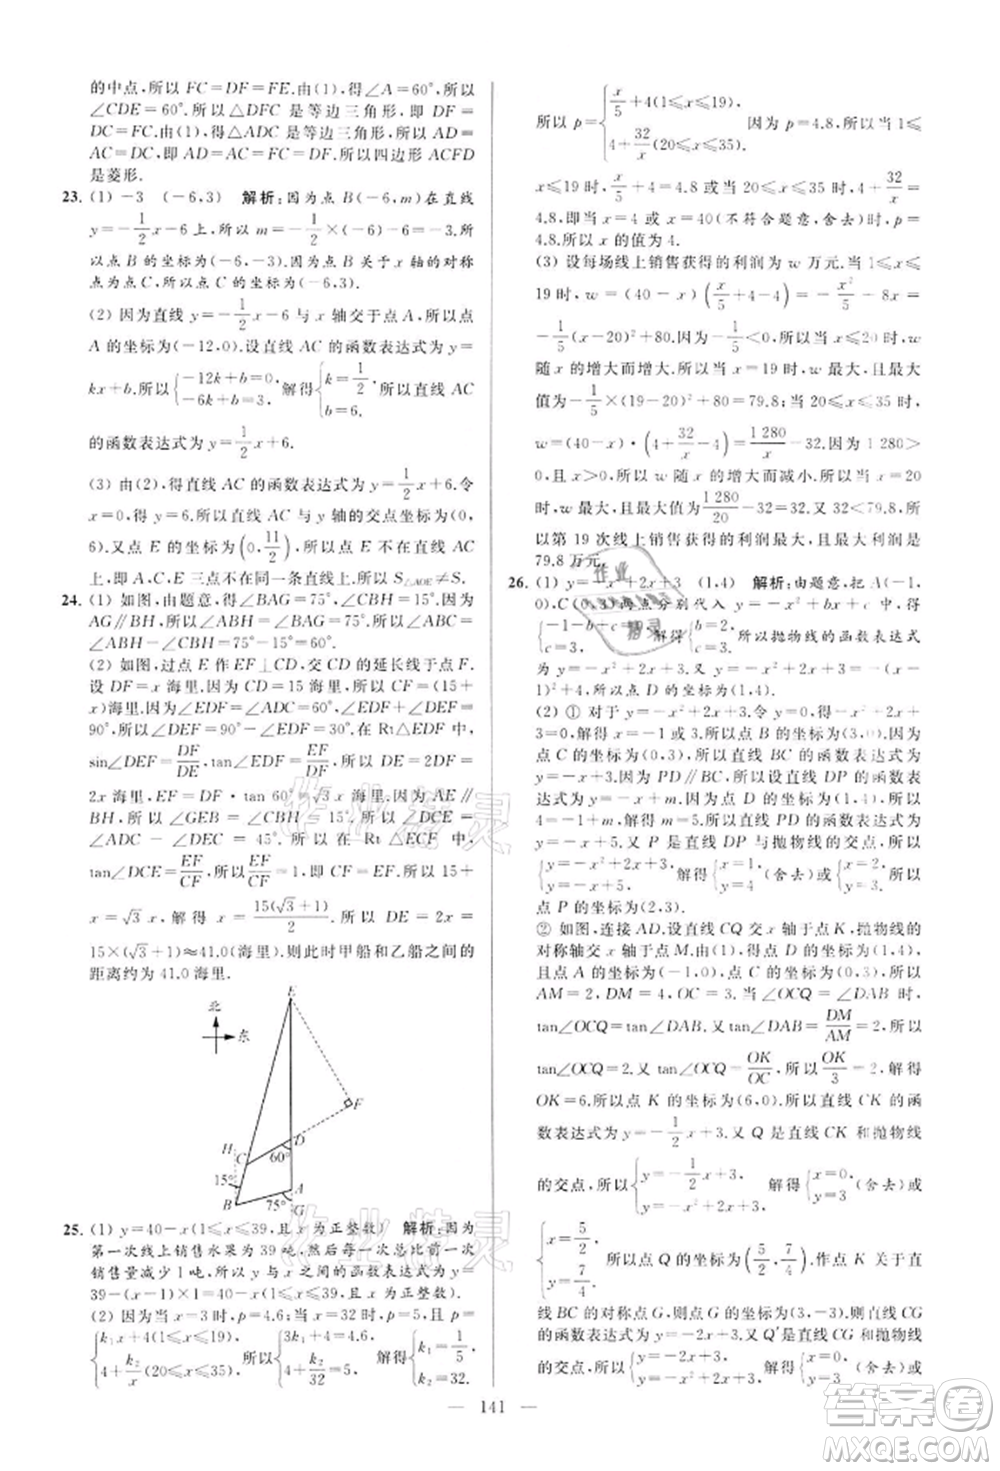 的中点,所以 FC=DF=FE.由(1),得∠A=60°,所以
∠CDE=60°.所以△DFC 是等边三角形,即 DF=
DC.由(1),得△ADC 是等边三角形,所以 AD=
AC=DC,即 AD=AC=DF=CF.所以四边形 ACFD
是菱形.
23. (1) -3 (-6,3) 解析:因为点 B(-6,m)在直线
y=-1/2x-6 上,所以 m=-1/2×(-6)-6=-3.所
以点 B 的坐标为(-6,-3).因为点 B 关于 x 轴的对称
点为点 C,所以点 C 的坐标为(-6,3).
(2) 因为直线 y=-1/2x-6 与 x 轴交于点 A,所以点
A 的坐标为(-12,0).设直线 AC 的函数表达式为 y=
kx+b.所以{-12k+b=0, -6k+b=3. 解得{k=1/2, b=6. 所以直线 AC
的函数表达式为 y=1/2x+6.
(3) 由(2),得直线 AC 的函数表达式为 y=1/2x+6.令
x=0,得 y=6.所以直线 AC 与 y 轴的交点坐标为(0,
6).又点 E 的坐标为(0,11/2),所以点 E 不在直线 AC
上,即 A,C,E 三点不在同一条直线上.所以 S△AOE≠S.
24. (1) 如图,由题意,得∠BAG=75°,∠CBH=15°.因为
AG∥BH,所以∠ABH=∠BAG=75°.所以∠ABC=
∠ABH-∠CBH=75°-15°=60°.
(2) 如图,过点 E 作 EF⊥CD,交 CD 的延长线于点 F.
设 DF=x 海里.因为 CD=15 海里,所以 CF=(15+
x)海里.因为∠EDF=∠ADC=60°,∠EDF+∠DEF=
90°,所以∠DEF=90°-∠EDF=30°.在 Rt△DEF 中,
sin∠DEF=DF/DE,tan∠EDF=EF/DF,所以 DE=DF/sin30°=
2x 海里,EF=DF·tan 60°=√3x 海里.因为 AE∥
BH,所以∠GEB=∠CBH=15°.所以∠ECF=
∠ADC-∠GEB=45°.所以在 Rt△ECF 中,
tan∠DCF=EF/CF,所以EF/CF=1,即 EF=CF.所以 15
+x=√3x,解得 x=15(√3+1)/2.所以 DE=2x=
15×(√3+1)≈41.0(海里),则此时甲船和乙船之间的
距离约为 41.0 海里.
北
东
E
F
H
C
D
60°
15°
B
75°
A
G
25. (1) y=40-x(1≤x≤39,且 x 为正整数) 解析:因为
第一次线上销售水果为 39 吨,然后每一次总比前一次
销售量减少1吨,所以 y 与 x 之间的函数表达式为 y=
39-(x-1)×1=40-x(1≤x≤39,且 x 为正整数).
(2) 因为当 x=3 时,p=4.6;当 x=32 时,p=5,且 p=
{k₁x+4(1≤x≤19), 4+k₂/x(20≤x≤35), 所以{3k₁+4=4.6, 4+k₂/32=5, 解得{k₁=1/5, k₂=32.
所以 p={x/5+4(1≤x≤19), 4+32/x(20≤x≤35). 因为 p=4.8,所以当 1≤
x≤19 时,x/5+4=4.8;当 20≤x≤35 时,4+32/x=
4.8,即 x=4 或 x=40(不符合题意,舍去)时,p=
4.8.所以 x 的值为 4.
(3) 设每场线上销售获得的利润为 w 万元.当 1≤x≤
19 时,w=(40-x)(x/5+4-4)=-x²/5-8x=
-1/5(x-20)²+80.因为-1/5<0,所以当 x≤20 时,w
随 x 的增大而增大.所以当 x=19 时,w 最大,最大
值为-1/5×(19-20)²+80=79.8;当 20≤x≤35 时,
w=(40-x)·(4+32/x-4)=1 280/x-32.因为 1 280>
0,且 x>0,所以 w 随 x 的增大而减小.所以当 x=20
时,w 最大,最大值为1 280/20-32=32.又 32<79.8,所
以第 19 次线上销售获得的利润最大,最大利润为
79.8 万元.
26. (1) y=-x²+2x+3 (1,4) 解析:由题意,把 A(-1,
0),C(0,3)两点分别代入 y=-x²+bx+c 中,得
{-1-b+c=0, c=3. 解得{b=2, c=3. 所以抛物线的函数表达式
为 y=-x²+2x+3.又 y=-x²+2x+3=-(x-
1)²+4,所以点 D 的坐标为(1,4).
(2) ① 对于 y=-x²+2x+3,令 y=0,得-x²+2x+
3=0,解得 x=-1 或 3,所以点 B 的坐标为(3,0).因为
点 C 的坐标为(0,3),所以直线 BC 的函数表达式为
y=-x+3.因为 PD∥BC,所以设直线 DP 的函数表
达式为 y=-x+m.因为点 D 的坐标为(1,4),所以
4=-1+m,解得 m=5.所以直线 PD 的函数表达式为
y=-x+5.又点 P 是直线 DP 与抛物线的交点,所以
{y=-x²+2x+3, y=-x+5, 解得{x=1, y=4 (舍去)或{x=2, y=3. 所以
点 P 的坐标为(2,3).
② 如图,连接 AD.设直线 CQ 交 x 轴于点 K,抛物线的
对称轴交 x 轴于点 M.由(1),得点 D 的坐标为(1,4),
且点 A 的坐标为(-1,0),点 C 的坐标为(0,3),所以
AM=2,DM=4,OC=3.当∠OCQ=∠DAB 时,
tan∠OCQ=tan∠DAB.又 tan∠DAB=DM/AM=2,所以
tan∠OCQ=2.又 tan∠OCQ=OK/OC,所以OK/3=2,即
OK=6.所以点 K 的坐标为(6,0).所以直线 CK 的函
数表达式为 y=-1/2x+3.又 Q 是直线 CK 和抛物线
的交点,所以{y=-1/2x+3, y=-x²+2x+3. 解得{x=0, y=3 (舍去)或
{x=5/2, y=7/4. 所以点 Q 的坐标为(5/2,7/4).作点 K 关于直
线 BC 的对称点 G,则点 G 的坐标为(3,-3),则直线 CG
的函数表达式为 y=-2x+3.又 Q′是直线 CG 和抛物线
的交点,所以{y=-2x+3, y=-x²+2x+3, 解得{x=0, y=3 (舍去)或
— 141 —
作业精灵
作业精灵
作业
精灵
答案圈
MXQE.COM